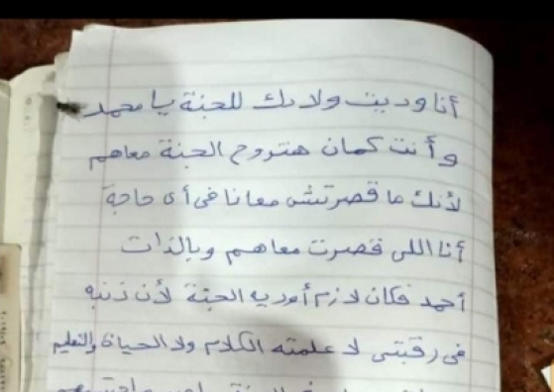 أنا وديت ولادك للجنة يا محمد
وأنت كمان هتروح الجنة معاهم
لأنك ما قصرتش معانا فى أى حاجة
أنا اللى قصرت معاهم وبالذات
أحمد فكان لازم أوديه الجنة لأن ذنبه
فى رقبتى لا علمته الكلام ولا الحياة والتعليم